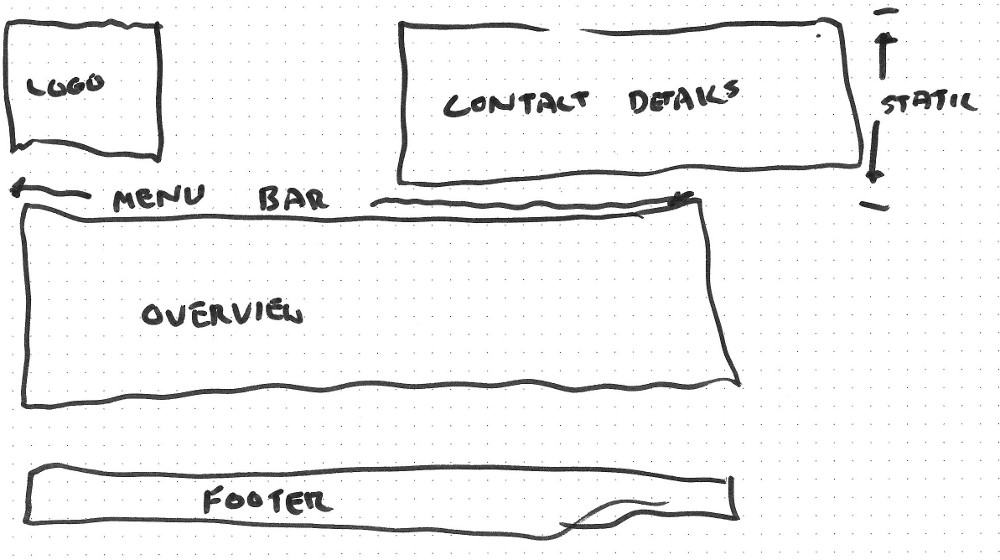 LOGO
CONTACT DETAILS
STATIC
MENU BAR
OVERVIEW
FOOTER